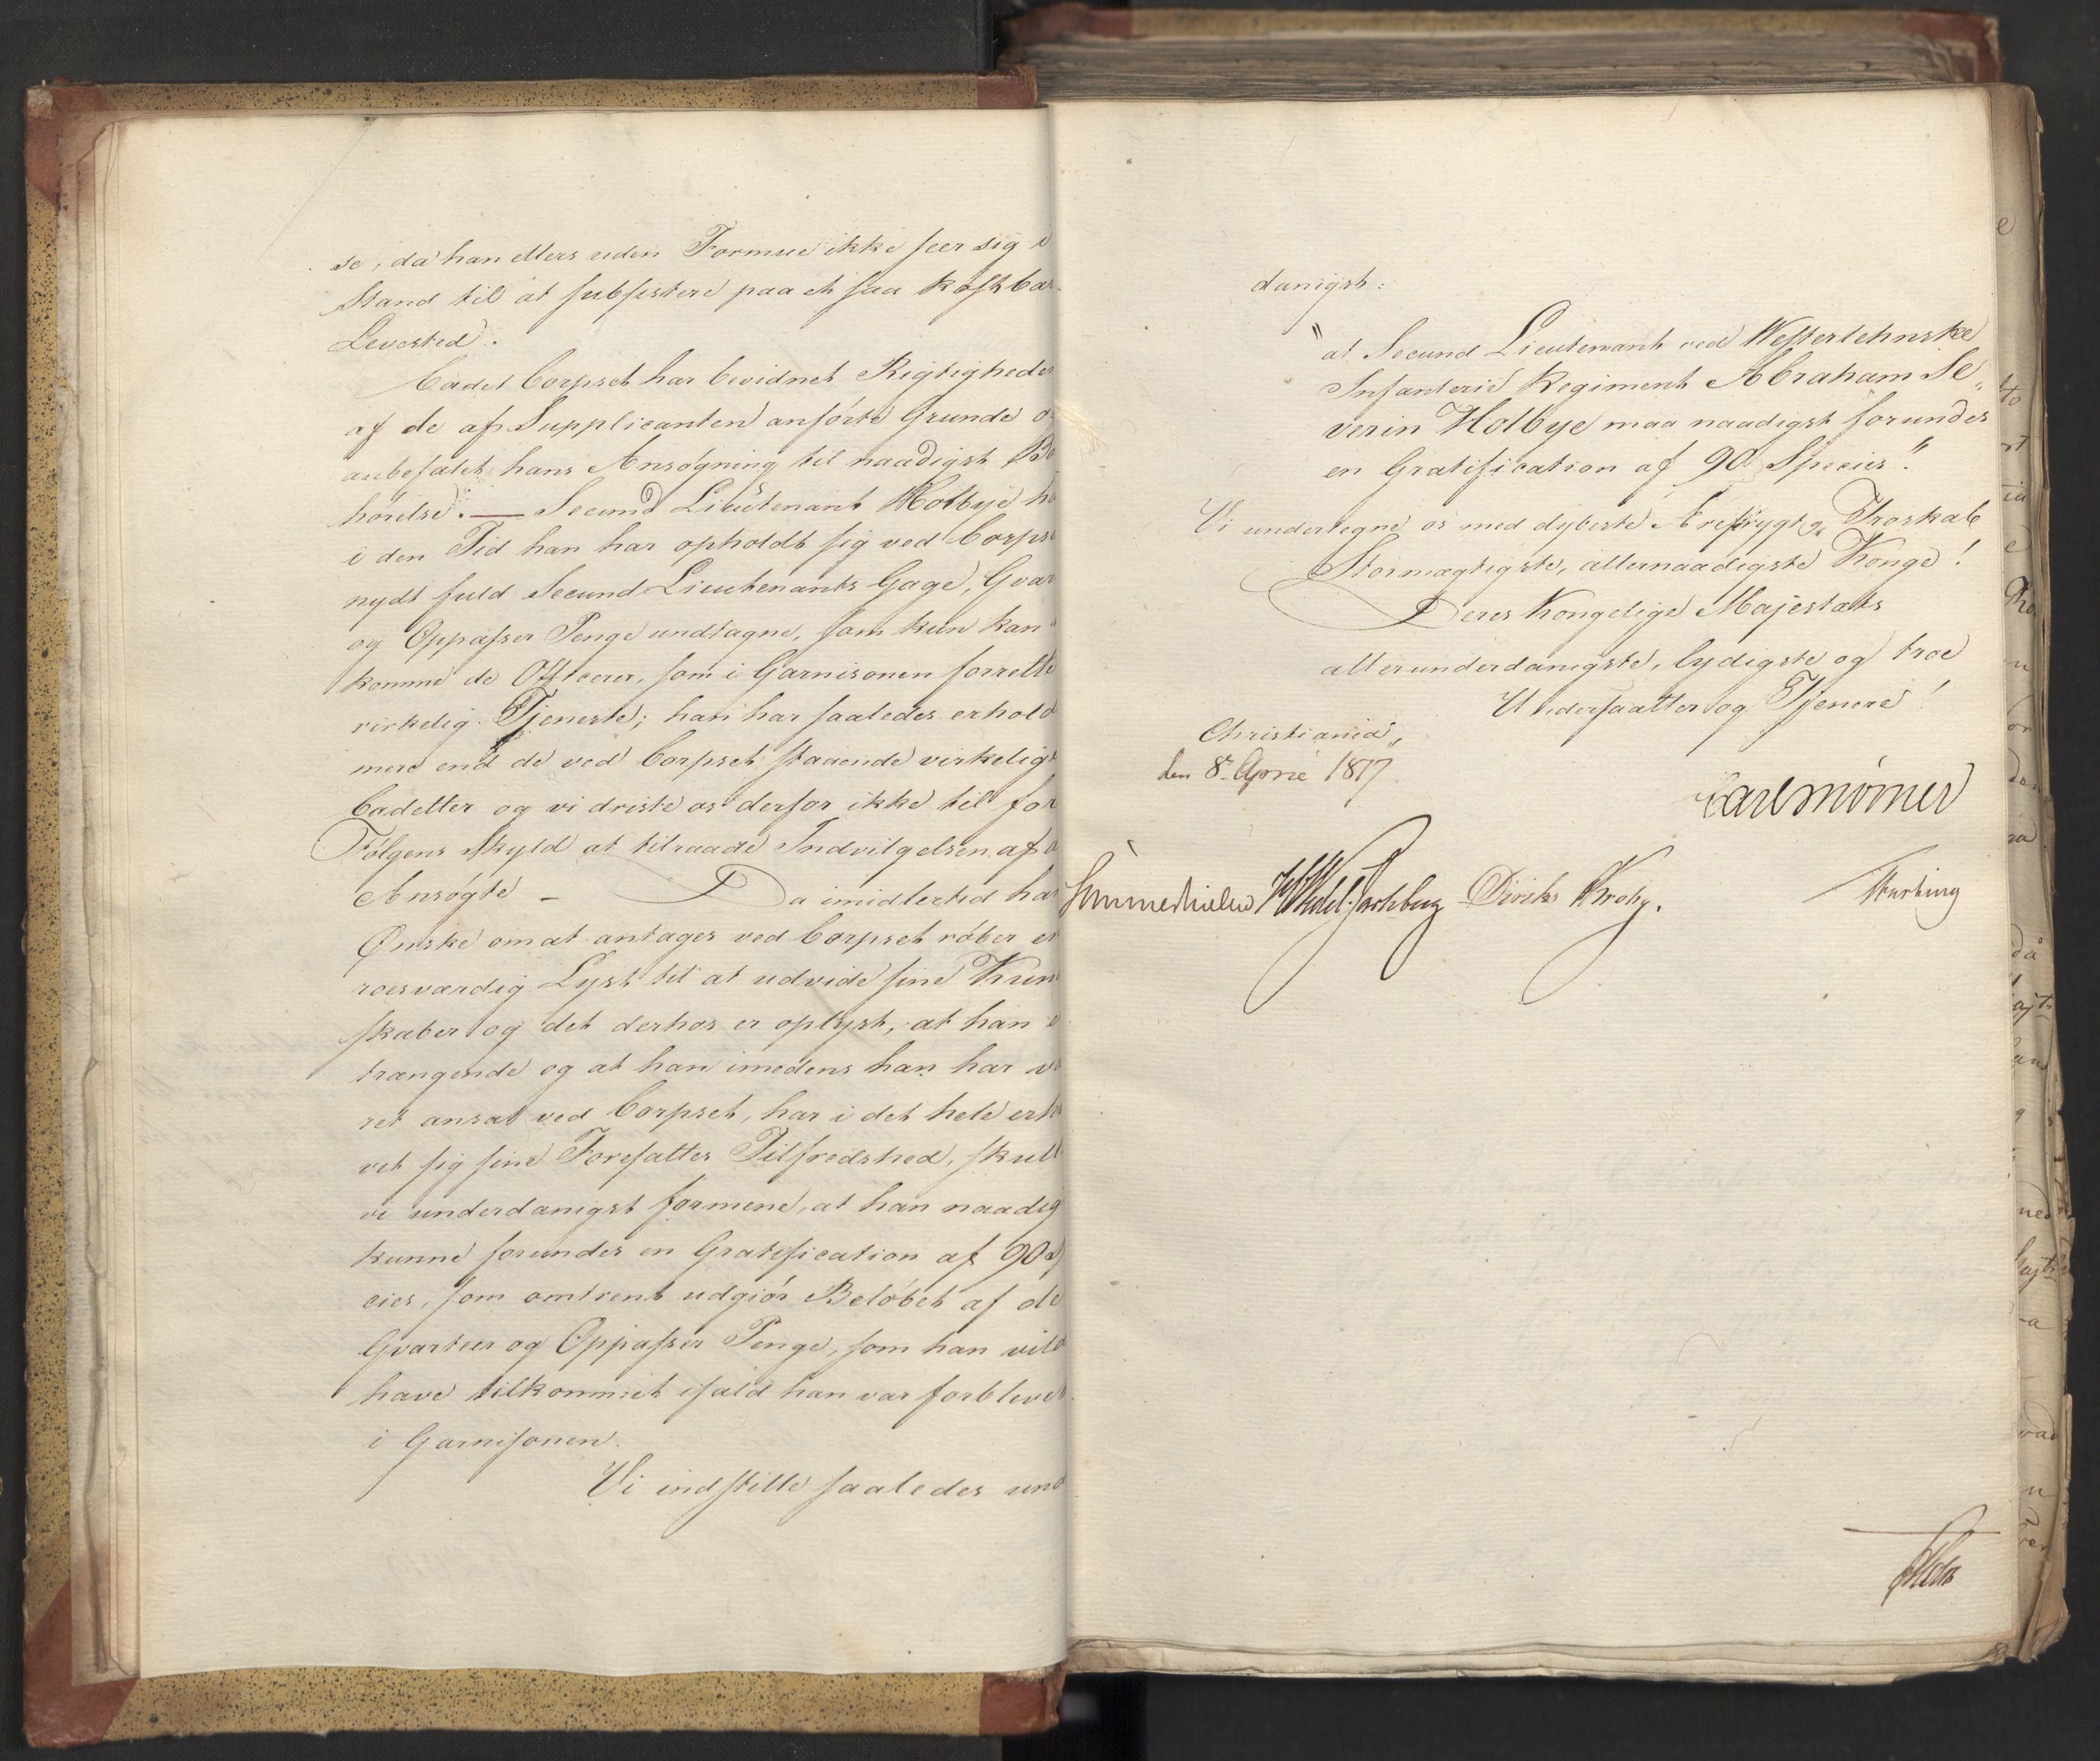 se, da han ellers uden Formue ikke seer sig i
Stand til at subsistere paa et saa kostbar
Levested.
Cadet Corpset har bevidnet Rigtigheden
af de af Supplicanten anförte Grunde o
anbefalet hans Ansögning til naadigst Bö
hörelse. — Secund Lieutenant Holbye ha
i den Tid han har opholdt sig ved Corpse
nydt fuld Secund Lieutenants Gage, Qvar
og Oppasser Penge undtagne, som kun kan
komme de Officerer, som i Garnisonen forrette
virkelig Tjeneste; han har saaledes erhold
mere end de ved Corpset staaende virkelige
Cadetter og vi driste os derfor ikke til for
Fölgens Skyld at tilraade Indvilgelsen af d
Ansögte — Da imidlertid hans
Ønske om at antages ved Corpset röber en
roesværdig Lyst til at udvide sine Kun
skaber og det derhos er oplyst, at han e
trængende og at han imedens han har væ
ret ansat ved Corpset, har i det hele erh
vet sig sine Foresattes Tilfredshed, skull
vi underdanigst formene, at han naadig
kunne forundes en Gratification af 90 Sp
cies, som omtrent udgiör Belöbet af de
Qvarteer og Oppasser Penge, som han vild
have tilkommet ifald han var forblevet
i Garnisonen.
Vi indstille saaledes und
danigst:
"at Secund Lieutenant ved Westerlehnske
Infanterie Regiment Abraham Se„
verin Holbye maa naadigst forundes
en Gratification af 90 Species".
Vi undertegne os med dybeste Ærefrygt og Troskab
Stormægtigste, allernaadigste Konge!
Deres Kongelige Majestæts
allerunderdanigste, lydigste og troe
Undersaatter og Tjenere!
Christiania,
den 8de April 1817.
Carl Mörner
Sommerhielm HWedel Jarlsberg Diriks Krohg.